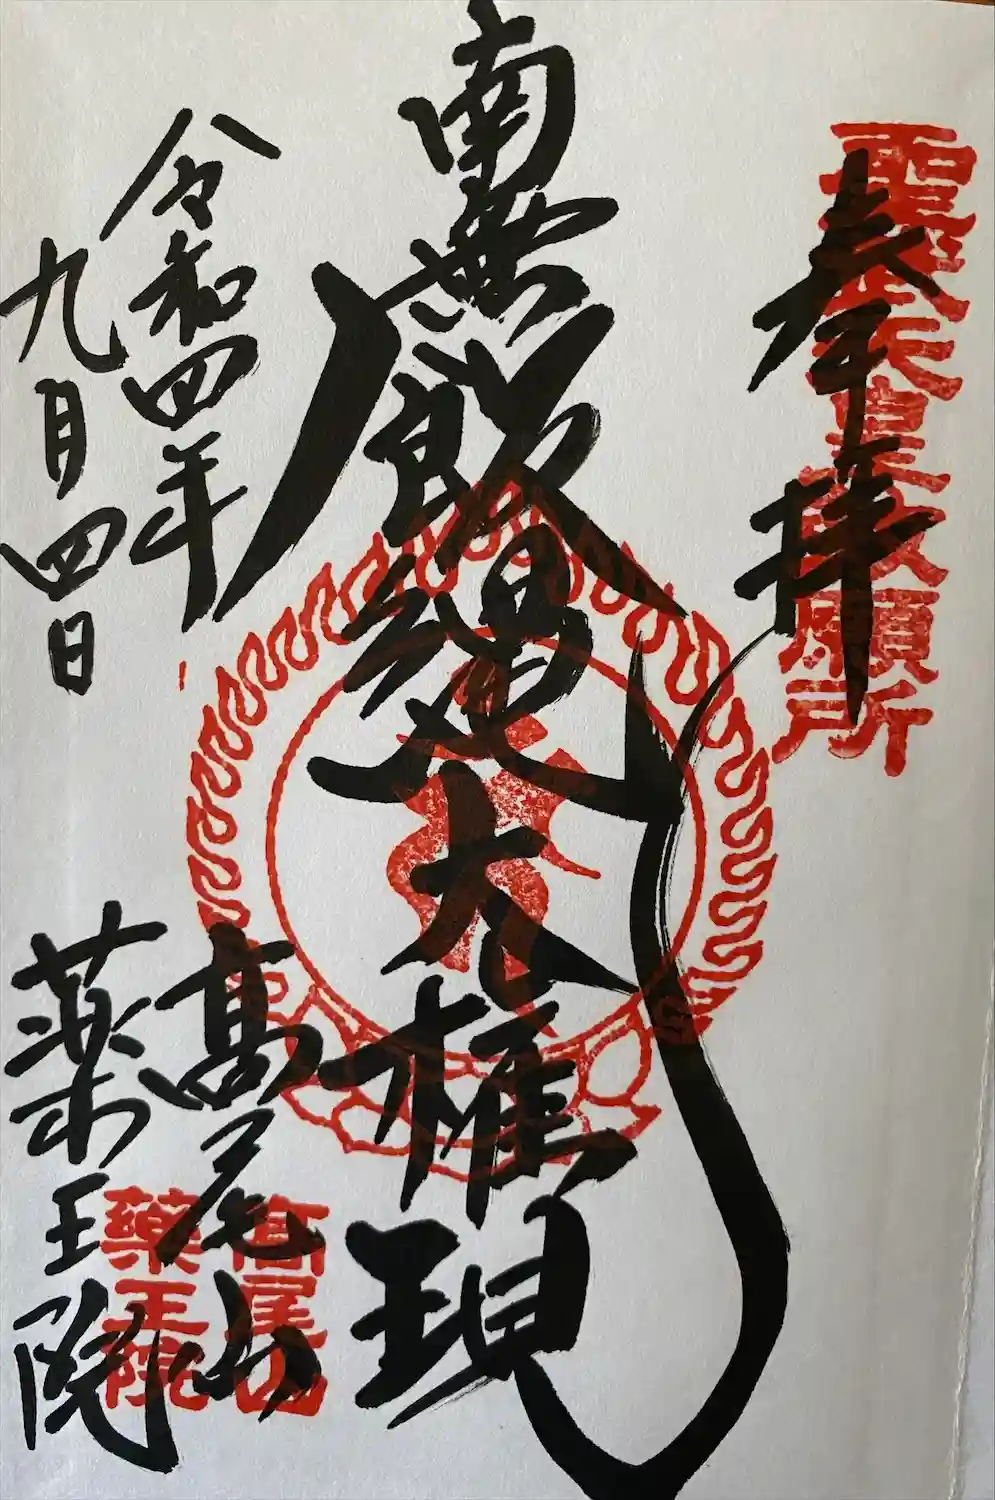 聖武天皇勅願所
奉拝
南無飯縄大権現
令和四年
九月四日
髙尾山
薬王院
髙尾山
藥王院